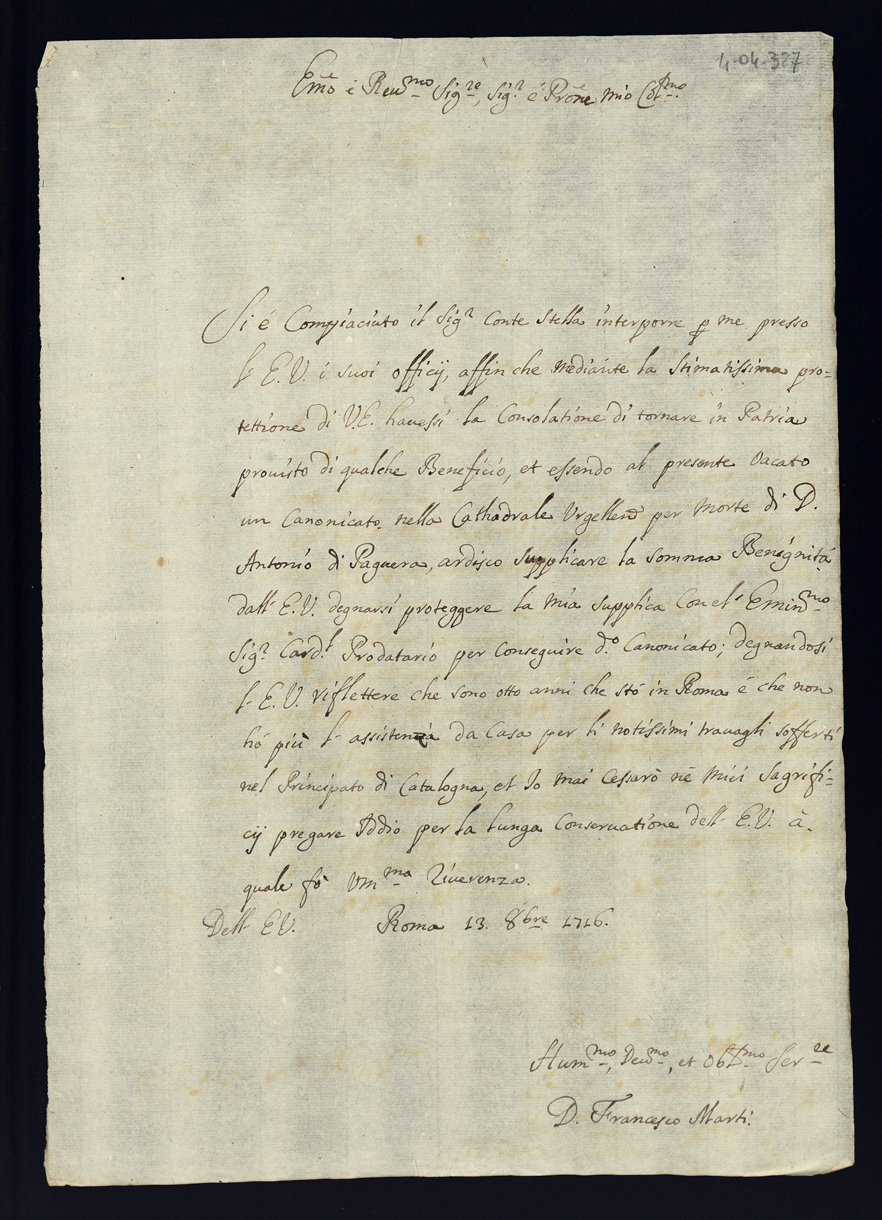 4-04-327
Emõ e Reu.mo Sig.re, Sig.r e Prõne mio Col.mo
Si é Compiaciuto il Sig.r Conte Stella interporre p me presso
l'E.V. i suoi officij, affinche mediante la stimatissima pro=
tettione di V.E. hauessi la Consolatione di tornare in Patria
prouisto di qualche Beneficio, et essendo al presente vacato
un Canonicato nella Cathadrale Urgelleñ per Morte di D.
Antonio di Paguera, ardisco supplicare la somma Benignitá
dall'E.V. degnarsi proteggere la mia supplica Con el' Emin.mo
Sig.r Card.l Prodatario per conseguire d.o Canonicato; degnandosi
l'E.V. riflettere che sono otto anni che stó in Roma é che non
hó piú l'assistenza da Casa per li notissimi trauagli sofferti
nel Principato di Catalogna, et Io mai Cessaró né Miei Sagrifi=
cij pregare Iddio per la lunga Conseruatione dell'E.V. á
quale fó Um.ma Riuerenza.
Dell'E.V. Roma 13. 8bre 1716.
Hum.mo, Deu.mo, et Obb.mo Ser.re
D. Francesco Marti.